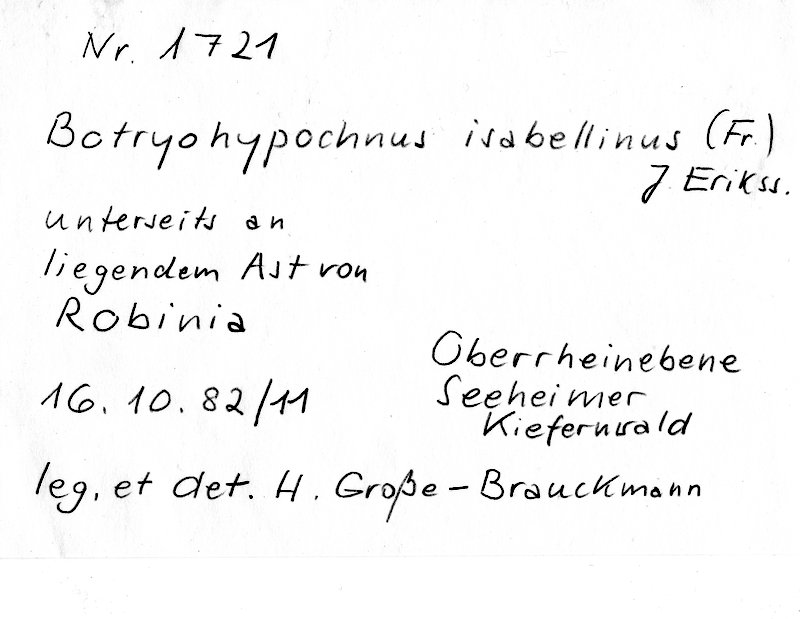 Nr. 1721
Botryohypochnus isabellinus (Fr.)
J. Erikss.
unterseits an
liegendem Ast von
Robinia
Oberrheinebene
16. 10. 82/11
Seeheimer
Kiefernwald
leg. et det. H. Große-Brauckmann